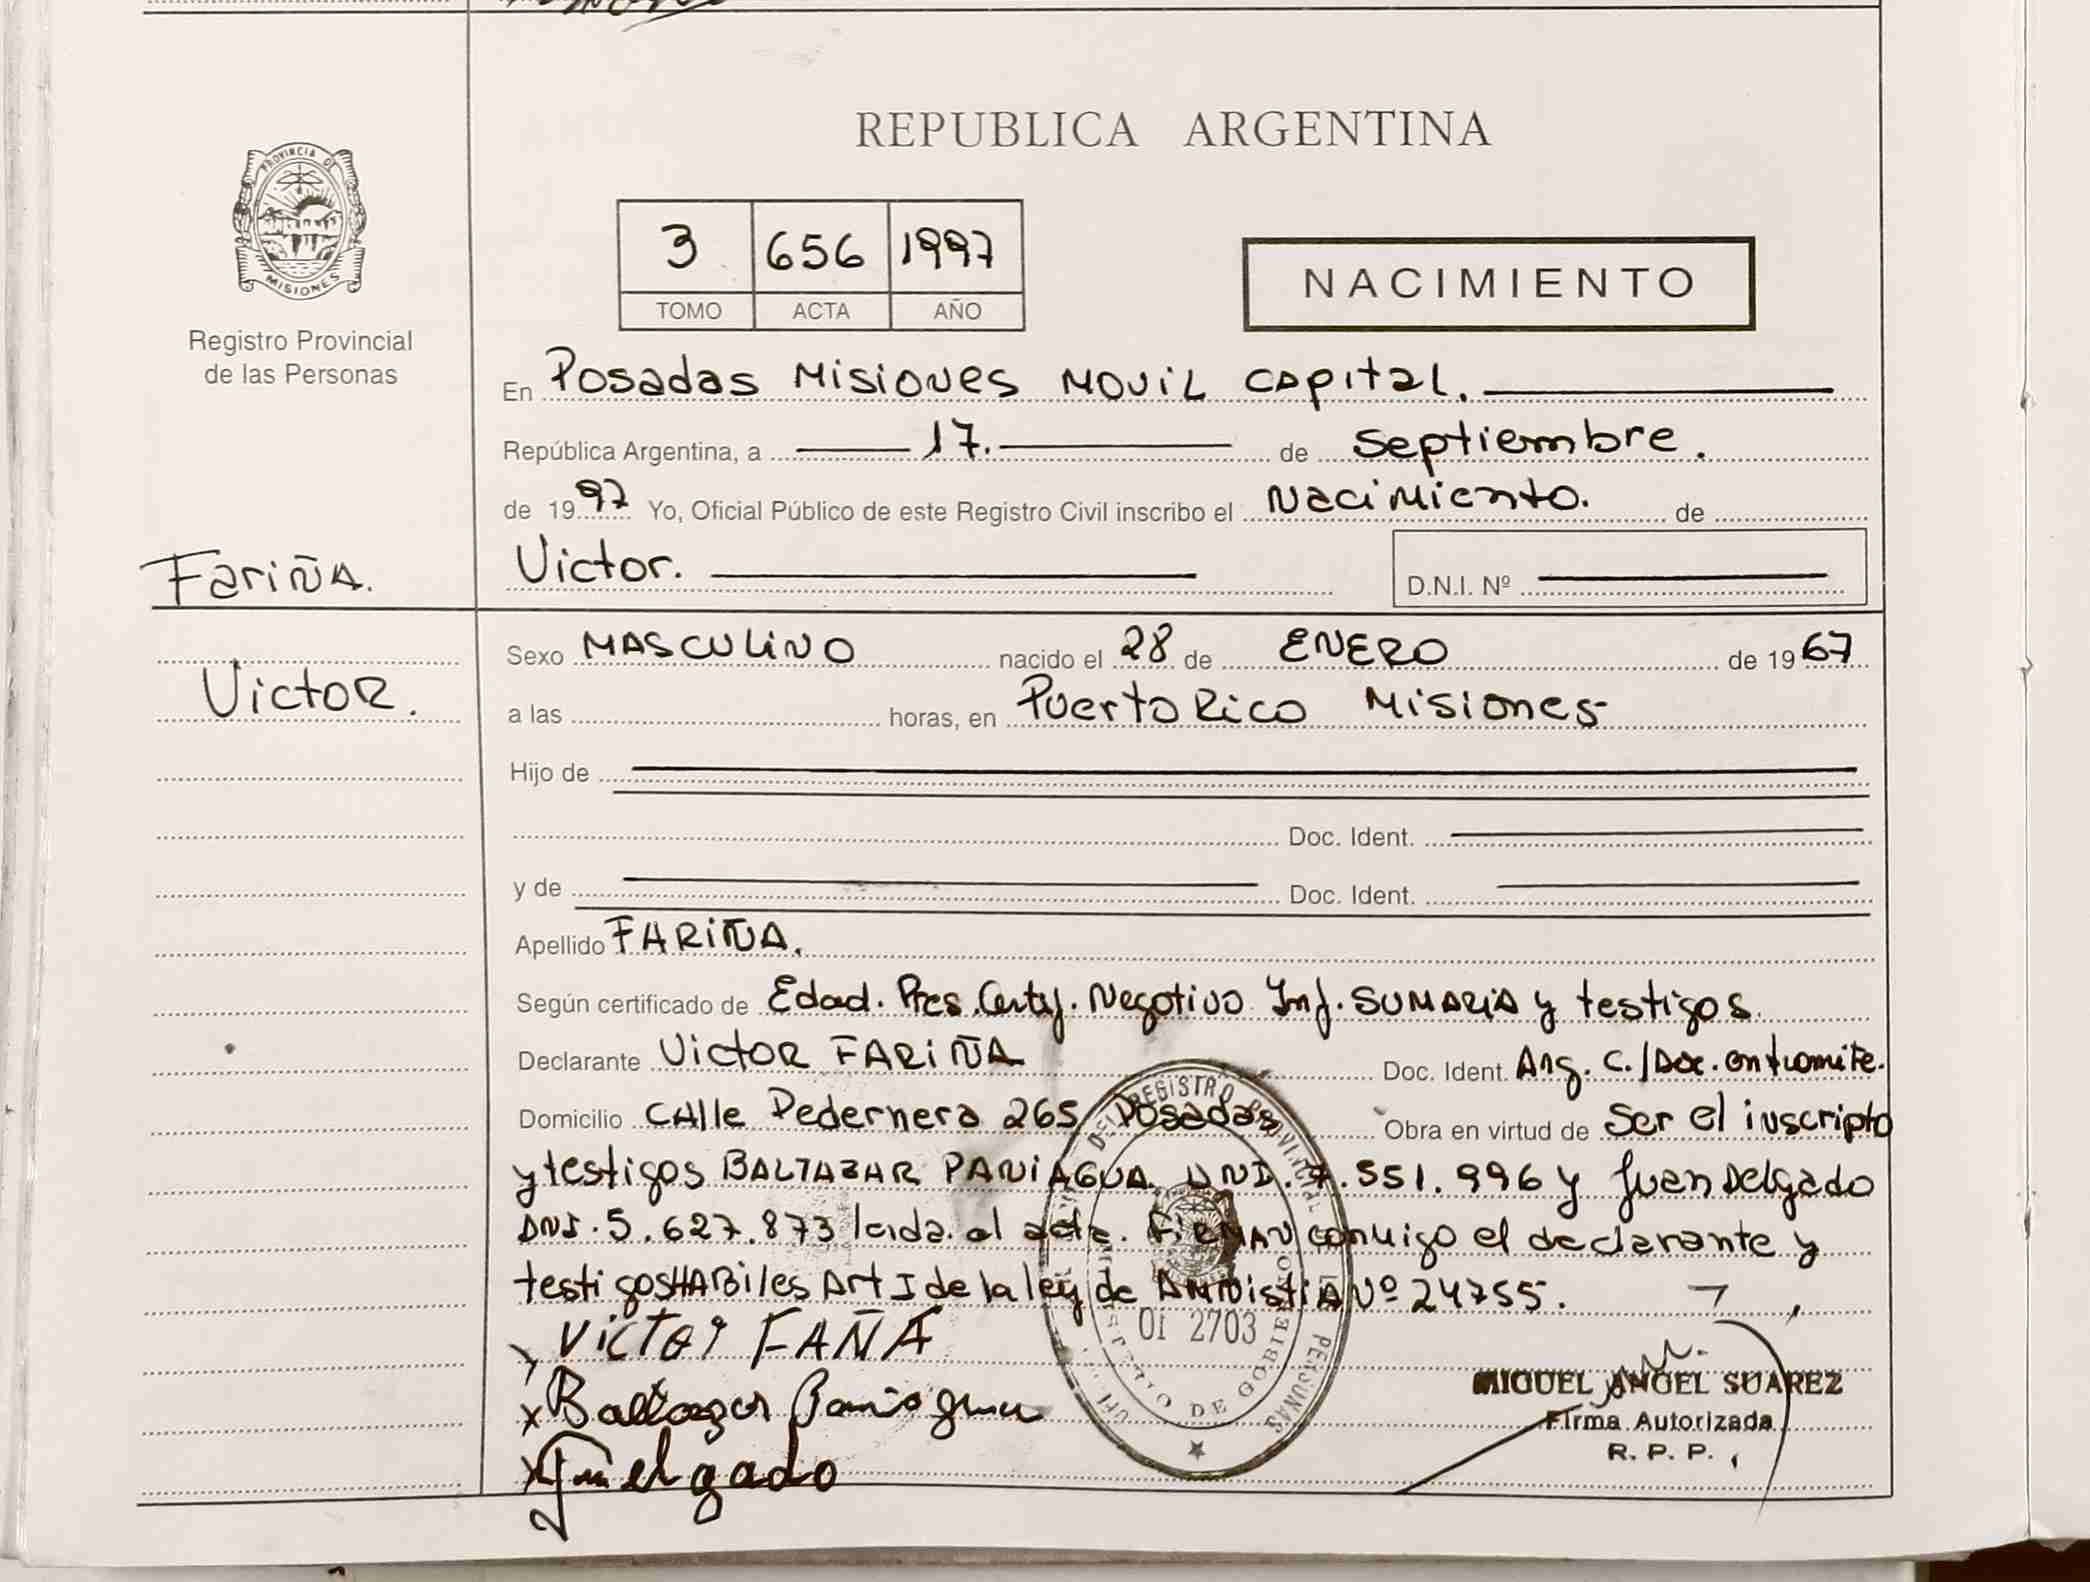 REPUBLICA ARGENTINA
PROVINCIA DE MISIONES
Registro Provincial
de las Personas
3 656 1997
TOMO ACTA AÑO
NACIMIENTO
En Posadas Misiones Movil Capital.
República Argentina, a 17. de septiembre.
de 1997 Yo, Oficial Público de este Registro Civil inscribo el Nacimiento. de
Fariña.
Victor. D.N.I. Nº
Victor.
Sexo MASCULINO nacido el 28 de ENERO de 1967
a las horas, en Puerto Rico Misiones
Hijo de
Doc. Ident.
y de Doc. Ident.
Apellido FARIÑA.
Según certificado de Edad. Pres. Certf. Negativo Inf. SUMARIA y testigos
Declarante Victor FARIÑA Doc. Ident. Arg. C./Doc. en tramite.
Domicilio CAlle Pedernera 265 Posadas Obra en virtud de ser el inscripto
y testigos BALTAZAR PANIAGUA DNI. 7.551.996 y Juan Delgado
DNI. 5.627.873 leida el acta. FIRMAN conmigo el declarante y
testigos HABiles Art I de la ley de AMNistiA Nº 24755.
VICTOr FAÑA
Baltazar Paniagua
elgado
DEL REGISTRO PROVINCIAL DE LAS PERSONAS
MINISTERIO DE GOBIERNO
01 2703
MIGUEL ANGEL SUAREZ
Firma Autorizada
R. P. P.